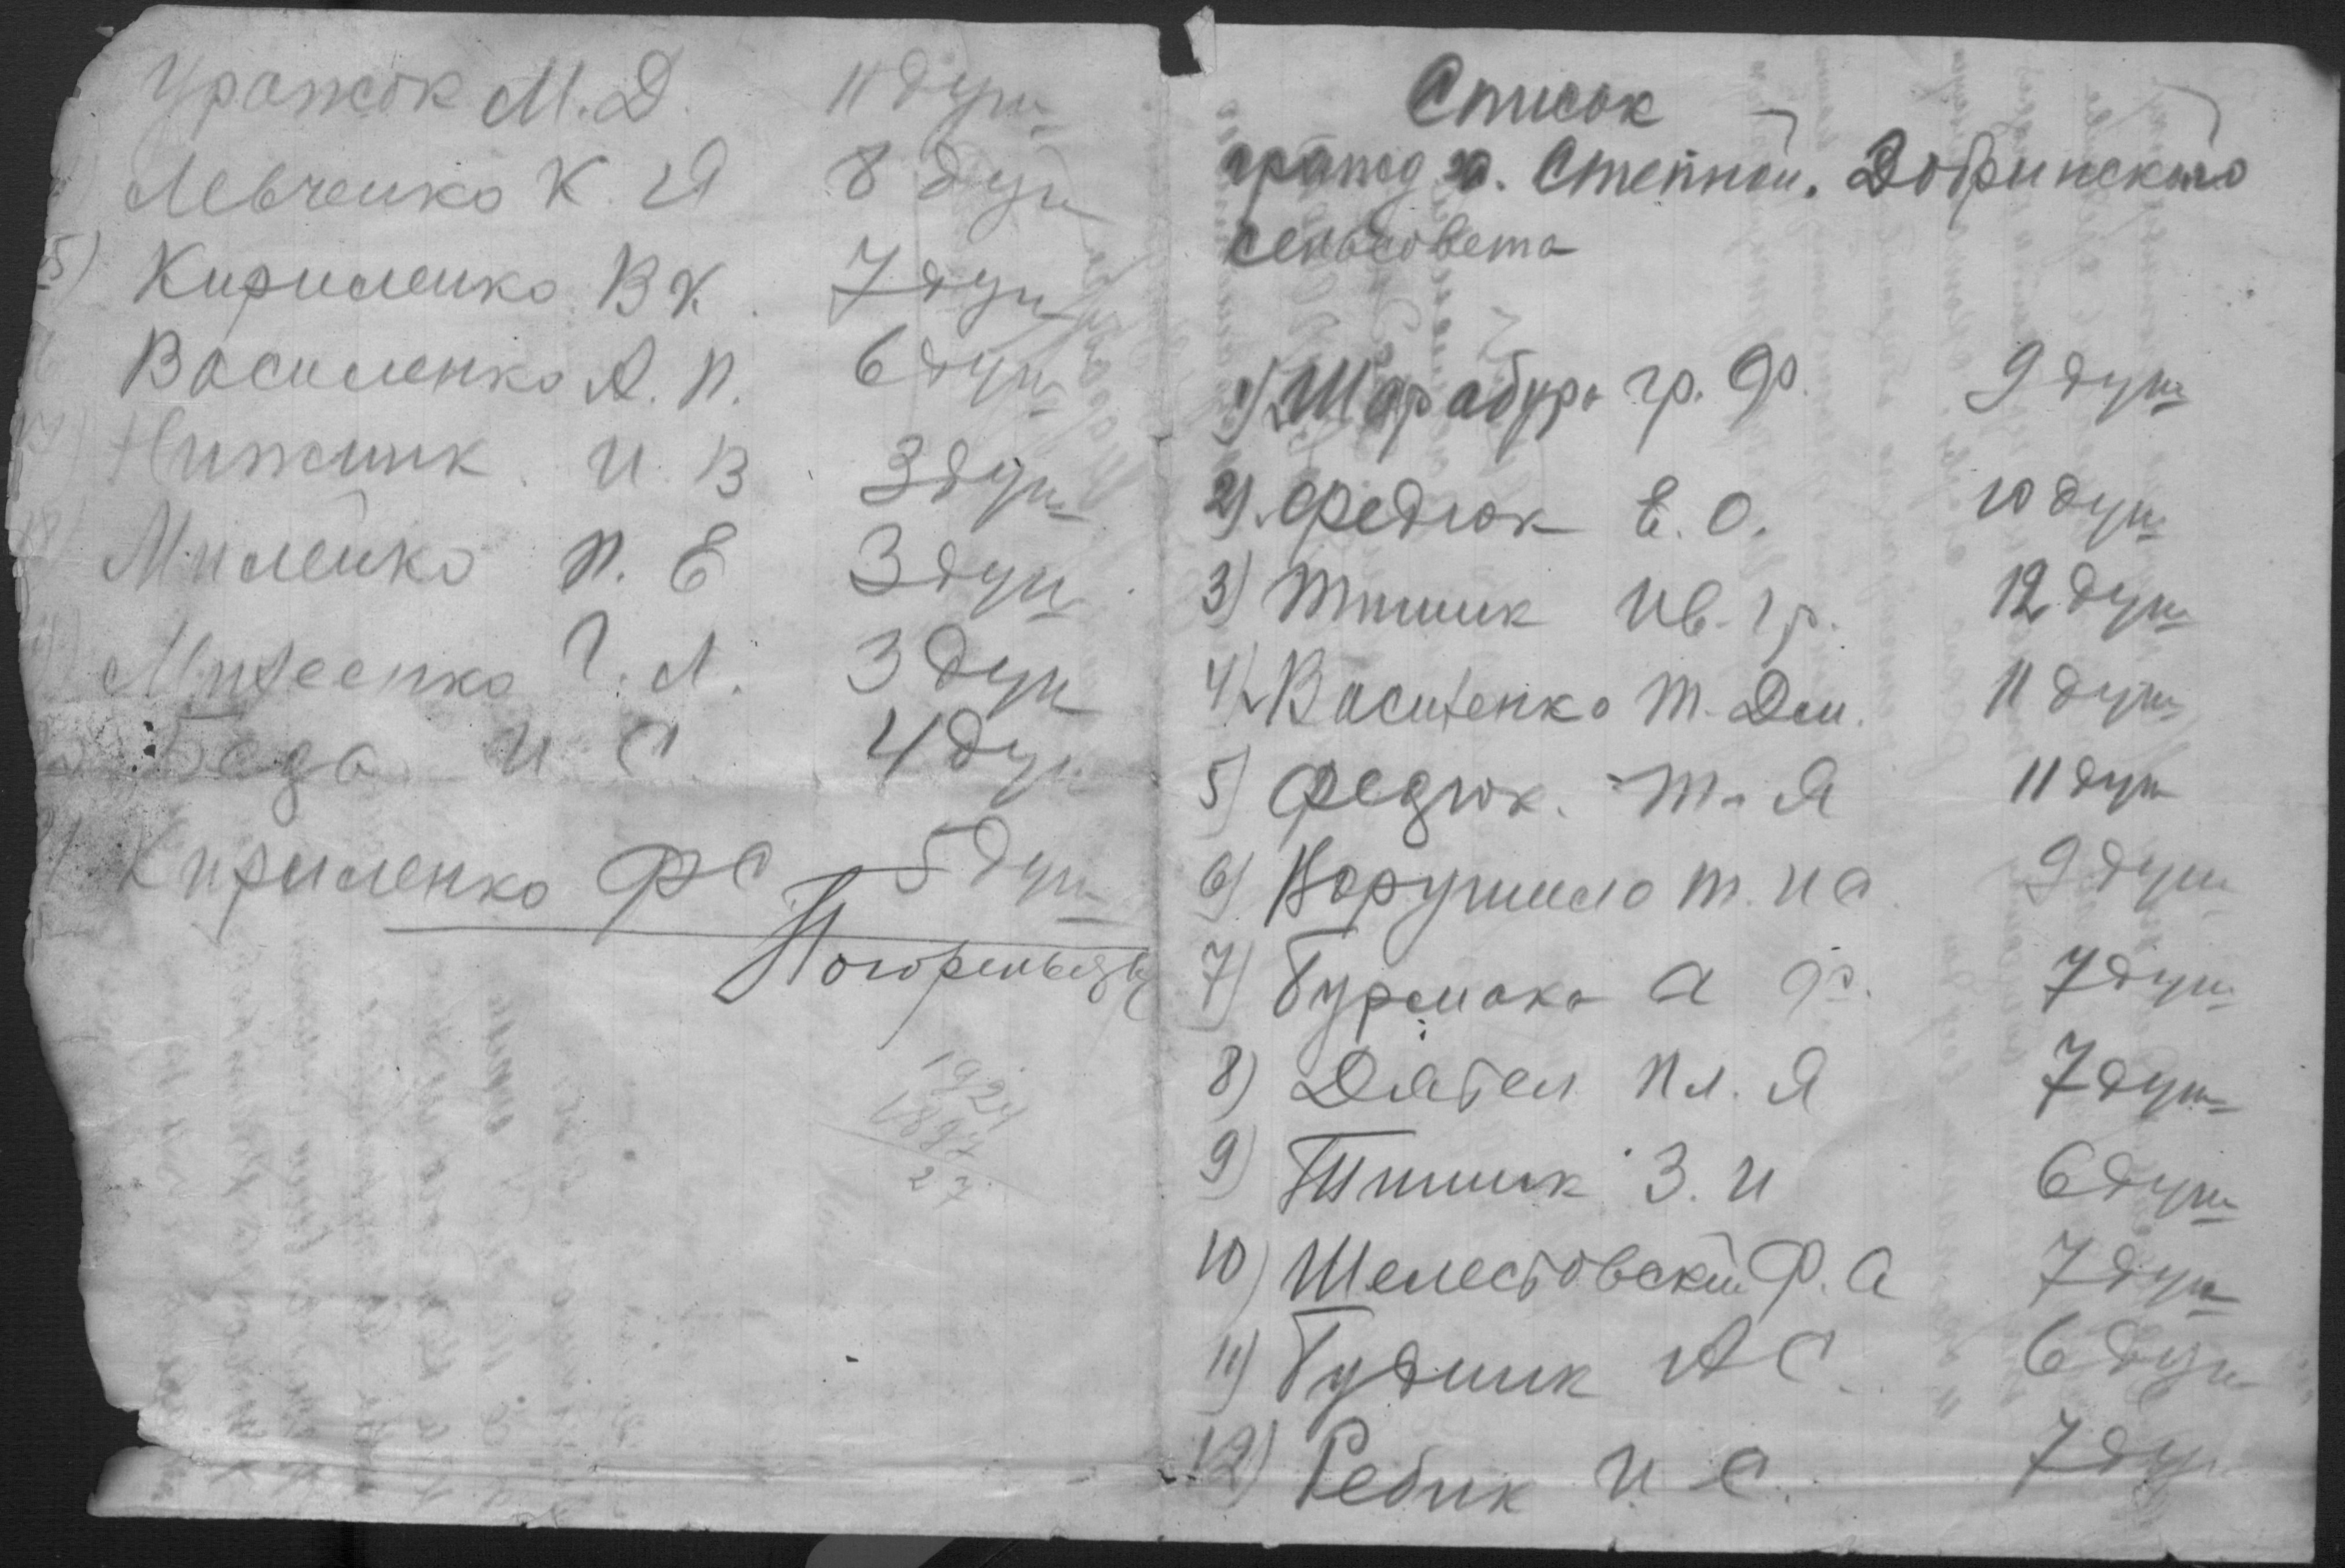 Список
гражд х. Степной. Добринского
сельсовета
1) Шарабура гр. Ф. 9 душ
2). Федюк Е. О. 10 душ
3) Тишик Ив. Гр. 12 душ
4) Василенко Т. Дем. 11 душ
5) Федюк. Т. Я 11 душ
6) Ворушило Т. И С 9 душ
7) Бурмака А Ф. 7 душ
8) Дятел Пл. Я 7 душ
9) Тишик З. И 6 душ
10) Шелестовский Ф. А 7 душ
11) Будник А С. 6 душ
12) Ребик И С. 7 душ
М. Д. 11 душ
Левченко К. Я 8 душ
15) Кириленко В К. 7 душ
Василенко А. П. 6 душ
17) Нижник И. В 3 душ
18) Миленко П. Е 3 душ
Михеенко Г. Л. 3 душ
Беда И С 4 душ
Кириленко Ф С 5 душ
1924
1897
27